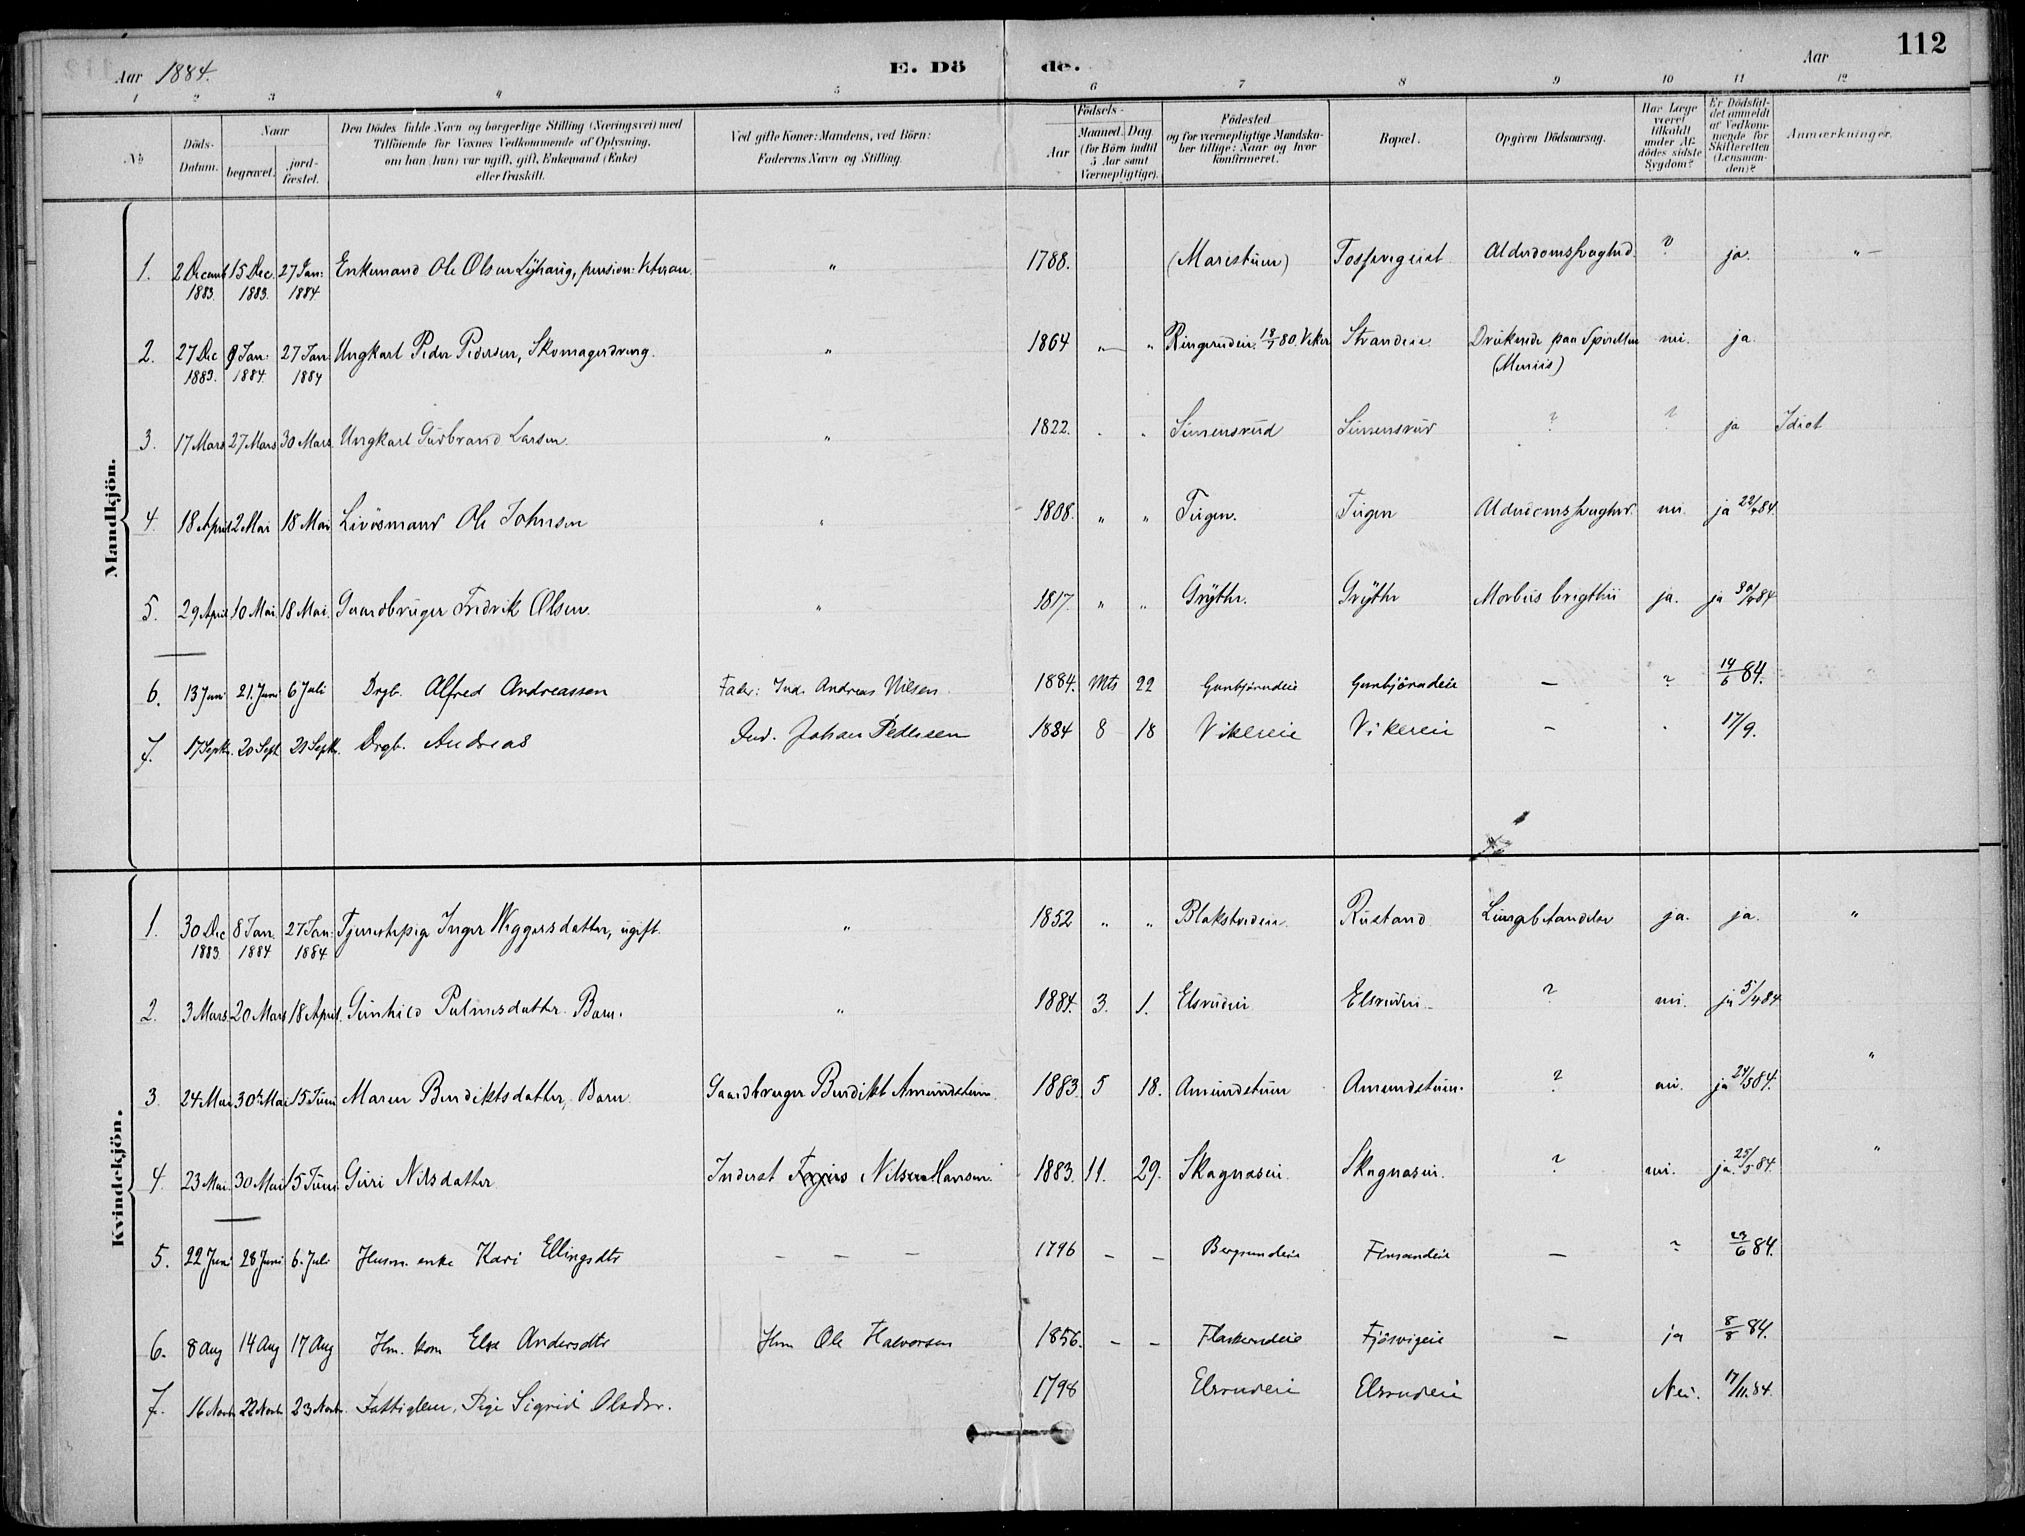 112
Aar 1884.
E. Dö de.
Aar
1 2 3 4 5 6 7 8 9 10 11 12
No
Döds-Datum.
Naar
begravet.
jord-fæstet.
Den Dödes fulde Navn og borgerlige Stilling (Næringsvei) med
Tilföiende for Voxnes Vedkommende af Oplysning,
om han (hun) var ugift, gift, Enkemand (Enke)
eller fraskilt.
Ved gifte Koner: Mandens, ved Börn:
Faderens Navn og Stilling.
Födsels-
Aar
Maaned. Dag.
(for Börn indtil
5 Aar samt
Værnepligtige).
Födested
og for værnepligtige Mandska-
ber tillige: Naar og hvor
konfirmeret.
Bopæl.
Opgiven Dödsaarsag.
Har Læge
været
tilkaldt
under Af-
dödes sidste
Sygdom?
Er Dödsfal-
det anmeldt
af Vedkom-
mende for
Skifteretten
(Lensman-
den)?
Anmærkninger.
Mandkjön.
1. 2 Decemb 1883. 15 Dec. 1883. 27 Jan: 1884 Enkemand Ole Olsen pension: Veteran. " 1788. (Maristuen) Alderdomssvaghed. ? ja. "
2. 27 Dec 1883. 9 Jan: 1884. 27 Jan: 1884 Ungkarl Peder Pedersen, Skomagerdreng. " 1864 " " 80. Viker Strandeie Drukende paa Spirillen ni. ja.
3. 17 Mars 27 Mars 30 Mars Ungkarl Gudbrand Larsen. " 1822. " " Simensrud Simensrud ? ? ja Idiot
4. 18 April 2 Mai 18 Mai Livösmand Ole Johnsen " 1808. " " Tingen. Tingen Alderdomssvaghed. ni. ja 22/4 84.
5. 29 April 10 Mai 18 Mai. Gaardbruger Fredrik Olsen. " 1817. " " Grÿthe. Grÿthe Morbus brigthii ja. ja 30/4 84
6. 13 Juni 21. Juni 6 Juli Drgb. Alfred Andreassen Fader: Ind. Andreas Nilsen. 1884. Mts 22 Gunbjörndeie Gunbjörndeie — ? 14/6 84.
7. 17 Septbr. 20 Sept. 21 Septbr. Drgb. Andreas Ind. Johan Pedersen 1884 8 18 Vikereie Vikereie — . 17/9.
Kvindekjön.
1. 30 Dec 1883. 8 Jan. 1884 27 Jan: 1884. Tjenestepige Inger Wiggersdatter, ugift. " 1852 " " Rustand Lungebetændelse ja. ja. "
2. 3 Mars 20 Mars 18 April. Gunhild Palmesdatter. Barn. " 1884. 3. 1. Elsrudeie Elsrudeie ? ni. ja 5/4 84
3. 24 Mai 30te Mai 15 Juni Maren Bendiktsdatter, Barn. Gaardbruger Bendikt Amundstuen. 1883. 5 18. Amundstuen Amundstuen. ? ni. ja 24/5 84. "
4. 23 Mai. 30 Mai 15 Juni Guri Nilsdatter. Inderst Nilsen Hansen. 1883. 11. 29. Skagnaseie. Skagnaseie. ? ni. ja. 25/5 84. "
5. 22 Juni 28 Juni 6. Juli Husm. enke Kari Ellingsdtr — — — 1796 — — Bergsundeie Finsandeie — ? 23/6 84.
6. 8 Aug 14 Aug 17 Aug Hm. kone Else Andersdtr Hm Ole Halvorsen 1856. — — Fjösvigeie — ja 8/8 84.
7. 16 Novbr 22 Novbr 23 Novbr. Fattiglem, Pige Sigrid Olsdtr. 1798 Elsrudeie Elsrudeie Nei. 17/11. 84.